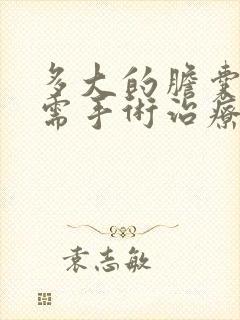 多大的膽囊
需手術治療
袁志敏